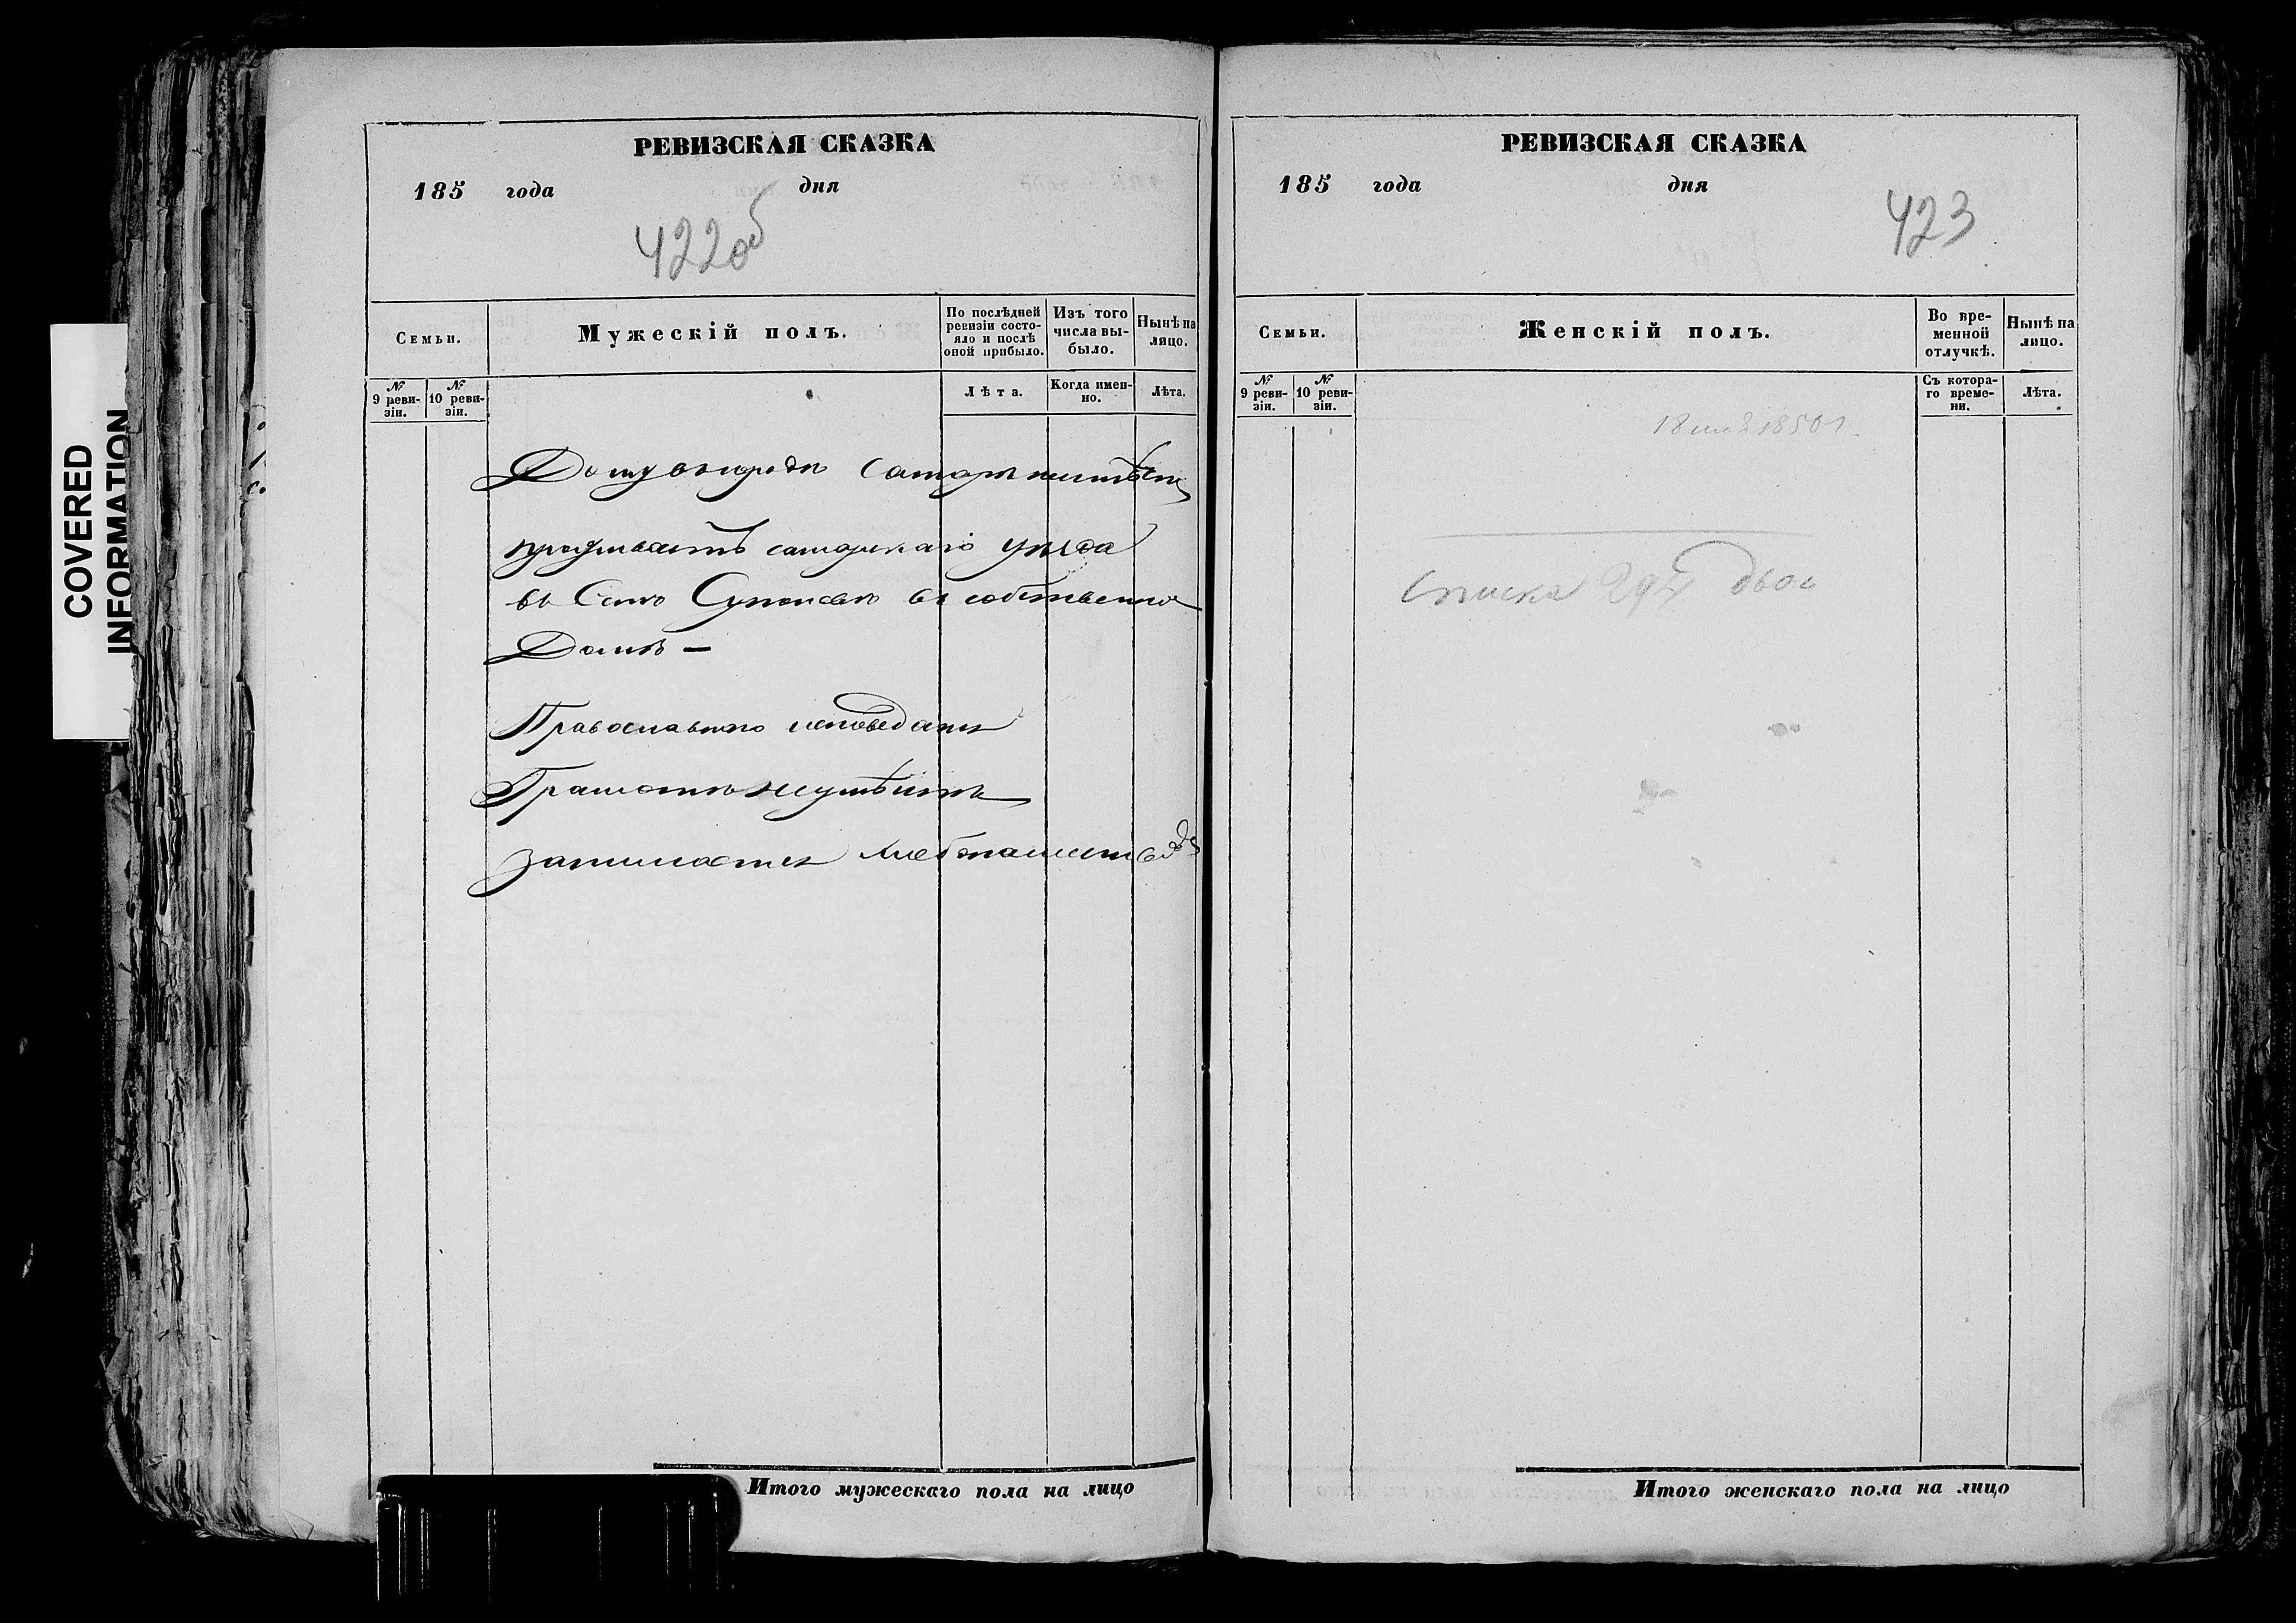 COVERED
INFORMATION
РЕВИЗСКАЯ СКАЗКА
185 года дня
422об
Семьи.
Мужескій полъ.
По послѣдней ревизіи состояло и послѣ оной прибыло.
Изъ того числа выбыло.
Нынѣ на лицо.
№ 9 ревизіи.
№ 10 ревизіи.
Лѣта.
Когда именно.
Лѣта.
Дому въ городѣ Самарѣ неимѣетъ
проживаетъ самарскаго уѣзда
въ Селѣ в собственно
Домѣ —
Православнаго исповеданія
Грамоте неумѣетъ
занимается хлебопашествомъ
Итого мужескаго пола на лицо
РЕВИЗСКАЯ СКАЗКА
185 года дня
423
Семьи.
Женскій полъ.
Во временной отлучкѣ.
Нынѣ на лицо.
№ 9 ревизіи.
№ 10 ревизіи.
Съ котораго времени.
Лѣта.
Итого женскаго пола на лицо